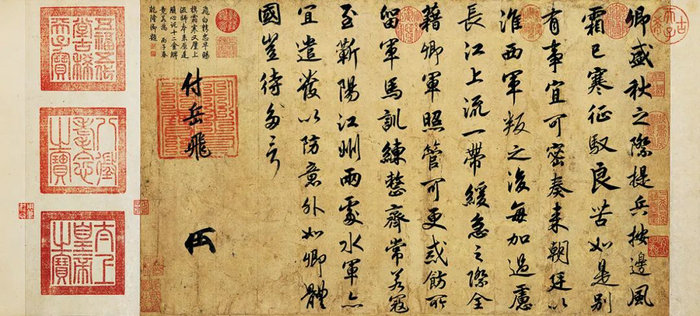 古希天子
卿盛秋之際提兵按邊風
霜已寒征馭良苦如是別
有事宜可密奏來朝廷以
淮西軍叛之後每加過慮
長江上流一帶緩急之際全
藉卿軍照管可更戒飭所
留軍馬訓練整齊常若寇
至蘄陽江州兩處水軍亦
宜遣發以防意外如卿體
國豈待多言
付岳飛
飛白精忠早賜
乾隆御題
五福五代
堂古稀
天子寶
八徵
耄念
之寶
太上
皇帝
之寶